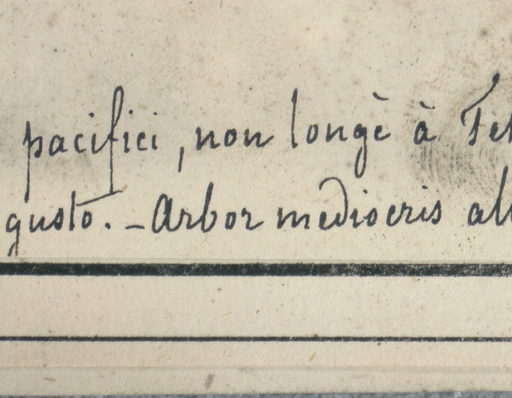 pacifici, non longè à Teh
gusto. - Arbor mediocris alt